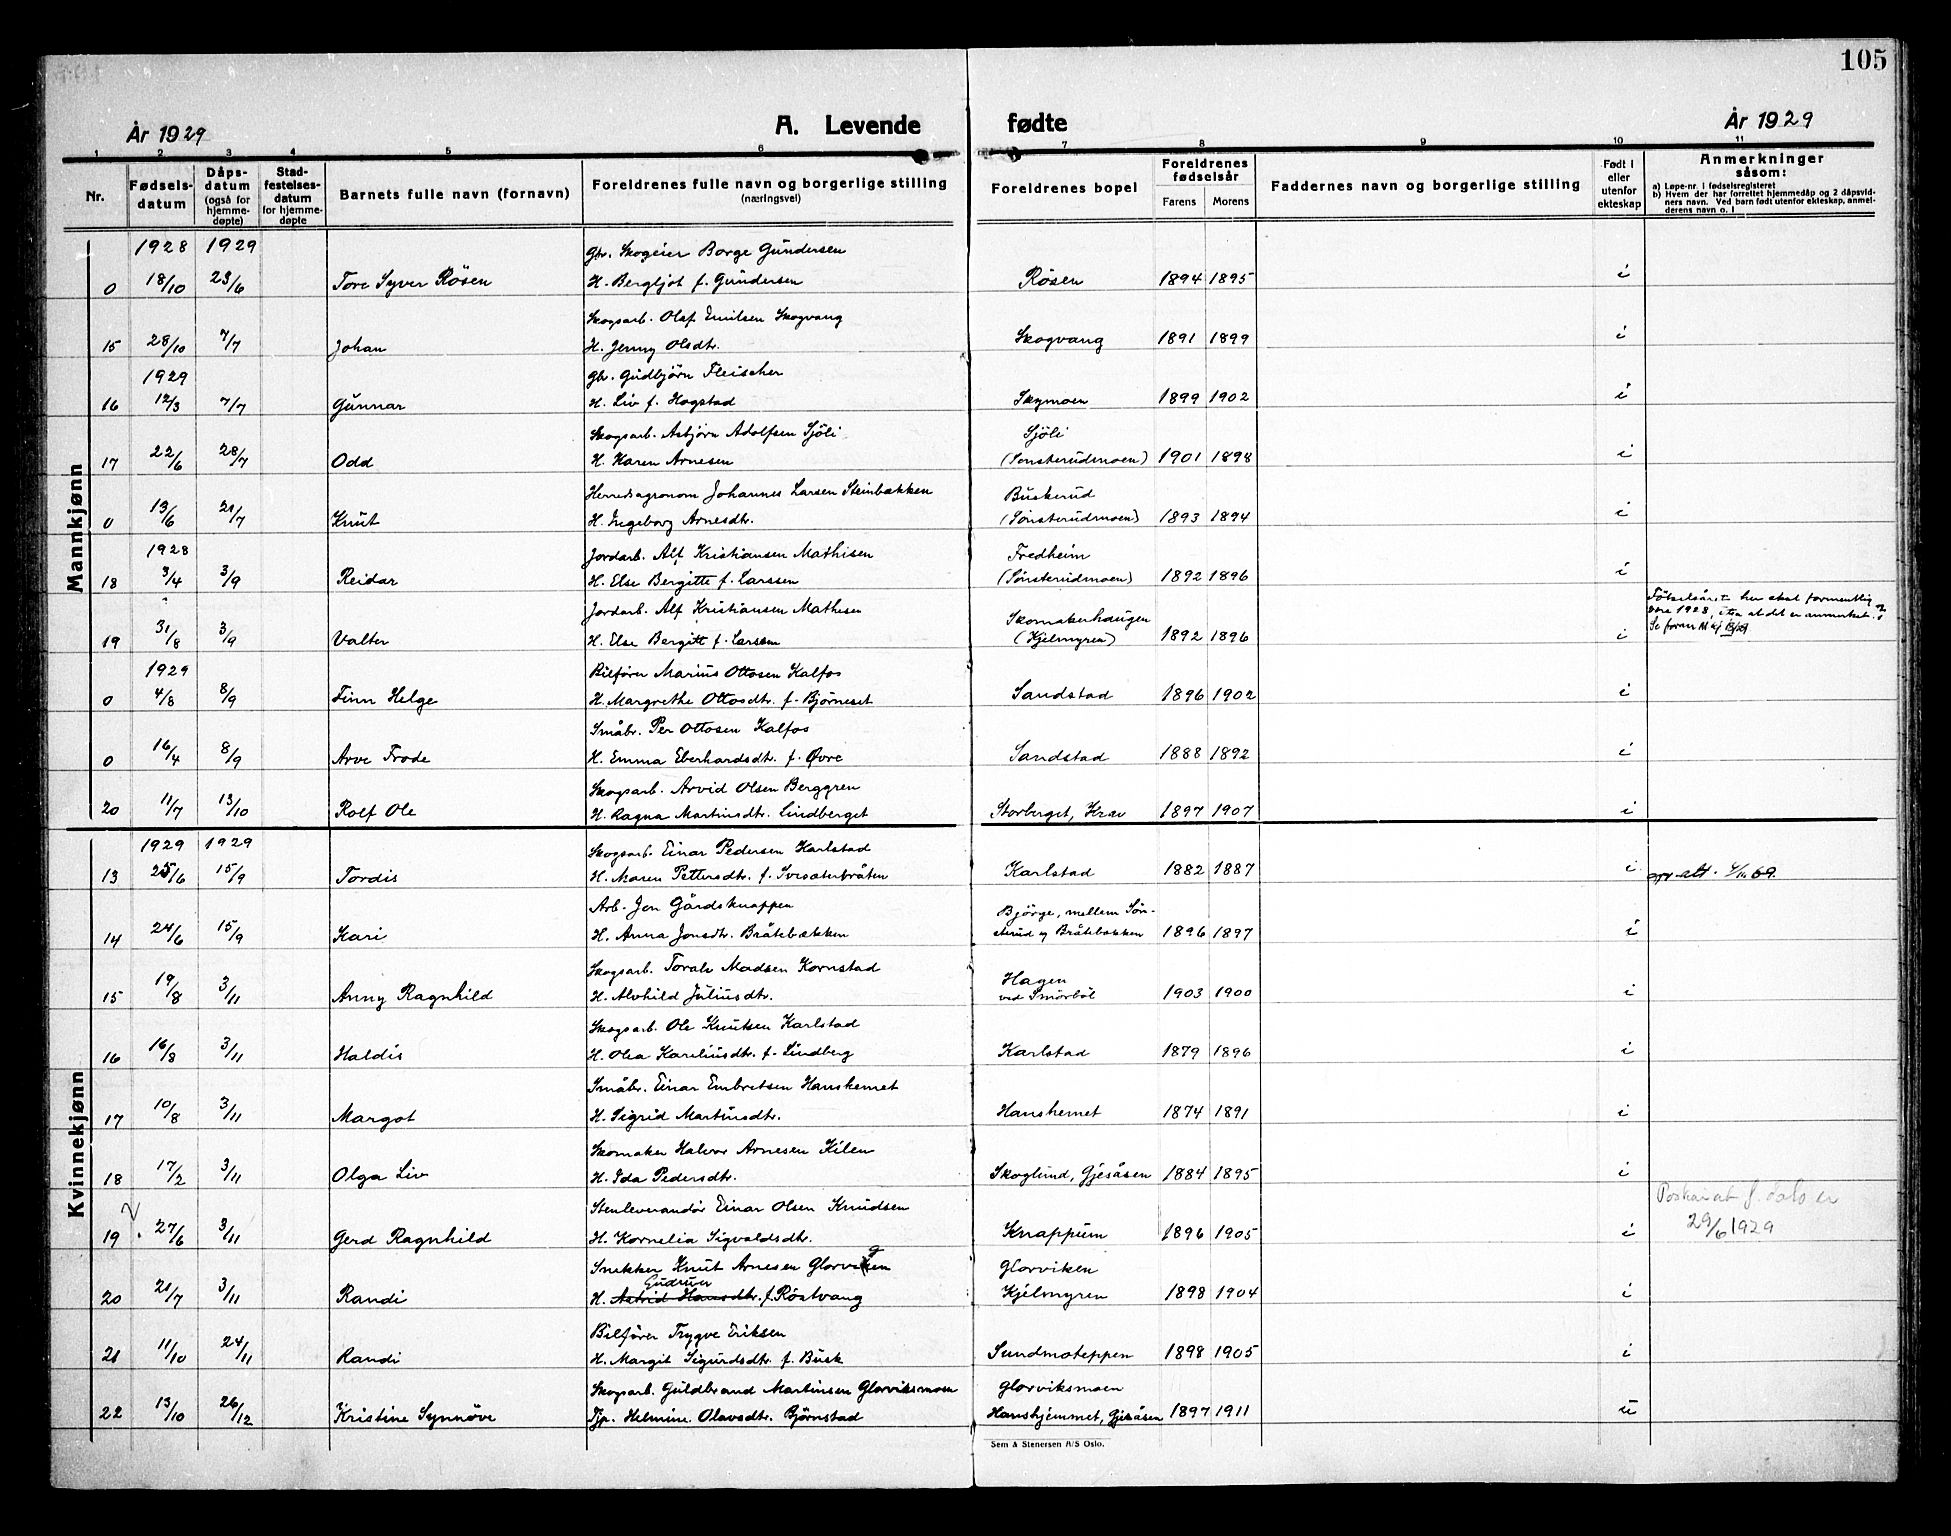 105
År 1929 A. Levende fødte År 1929
1 2 3 4 5 6 7 8 9 10 11
Nr. Fødselsdatum Dåpsdatum (også for hjemmedøpte) Stadfestelsesdatum for hjemmedøpte Barnets fulle navn (fornavn) Foreldrenes fulle navn og borgerlige stilling (næringsvei) Foreldrenes bopel Foreldrenes fødselsår Farens Morens Faddernes navn og borgerlige stilling Født i eller utenfor ekteskap Anmerkninger såsom:
a) Løpe-nr. i fødselsregisteret
b) Hvem der har forrettet hjemmedåp og 2 dåpsvidners navn. Ved barn født utenfor ekteskap, anmelderens navn o. l
Mannkjønn
1928 1929 Gbr. Skogeier Borge Gundersen
0 18/10 23/6 Tore Syver Røsen H. Bergljot f. Gundersen Røsen 1894 1895 i
Skogsarb. Olaf Emilsen Skogvang
15 28/10 7/7 Johan H. Jenny Olsdtr. Skogvang 1891 1899 i
1929 Gbr. Gudbjørn Fleischer
16 12/3 7/7 Gunnar H. Liv f. Hogstad Skymoen 1899 1902 i
Skogsarb. Asbjørn Adolfsen Sjöli Sjöli
17 22/6 28/7 Odd H. Karen Arnesen (Sønsterudmoen) 1901 1898 i
Herredsagronom Johannes Larsen Steinbækken Buskerud
0 13/6 21/7 Knut H. Ingeborg Arnesdtr. (Sønsterudmoen) 1893 1894 i
1928 Jordarb. Alf Kristiansen Mathisen Fredheim
18 3/4 3/9 Reidar H. Else Bergitte f. Larssen (Sønsterudmoen) 1892 1896 i
Jordarb. Alf Kristiansen Mathisen Skomakerhaugen Fødselsåret her skal formentlig
være 1928, uten at det er anmerket.
19 31/8 3/9 Valter H. Else Bergitt f. Larssen (Kjelmyren) 1892 1896 i
1929 Bilfører Marius Ottosen Kalfos
0 4/8 8/9 Finn Helge H. Margrethe Ottosdtr. f. Bjørneset Sandstad 1896 1902 i
Småbr. Per Ottosen Kalfos
0 16/4 8/9 Arve Frode H. Emma Eberhardsdtr. f. Øvre Sandstad 1888 1892 i
Skogsarb. Arvid Olsen Berggren
20 11/7 13/10 Rolf Ole H. Ragna Martinsdtr. Lindberget Storberget, Krav 1897 1907 i
Kvinnekjønn
1929 1929 Skogsarb. Einar Pedersen Karlstad
13 25/6 15/9 Tordis H. Maren Pettersdtr. f. Svesæterbråten Karlstad 1882 1887 i
Arb. Jon Gårdsknappen Bjørge, mellem Søn-
14 24/6 15/9 Kari H. Anna Jonsdtr. Bråtebækken sterud og Bråtebækken 1896 1897 i
Skogsarb. Torals Madsen Kornstad Hagen
15 19/8 3/11 Anny Ragnhild H. Alvhild Juliusdtr. ved Smörböl 1903 1900 i
Skogsarb. Ole Knutsen Karlstad
16 16/8 3/11 Haldis H. Olea Kareliusdtr. f. Lindberg Karlstad 1879 1896 i
Småbr. Einar Embretsen Hanshemet
17 10/8 3/11 Margot H. Sigrid Martinsdtr. Hanshemet 1874 1891 i
Skomaker Halvor Arnesen Kilen
18 17/2 3/11 Olga Liv H. Ida Pedersdtr. Skoglund, Gjesåsen 1884 1895 i
Stenleverandør Einar Olsen Knudsen
19 27/6 3/11 Gerd Ragnhild H. Kornelia Sigvaldsdtr. Knappum 1896 1905 i 29/6 1929
Snekker Knut Arnesen Glorviken Glorviken
Gudrun
20 21/7 3/11 Randi H. Astrid Hansdtr. f. Röstvang Kjelmyren 1898 1904 i
Bilfører Trygve Eriksen
21 11/10 24/11 Randi H. Margit Sigurdsdtr. f. Busk Sundmoteppen 1898 1905 i
Skogsarb. Guldbrand Martinsen Glorviksmoen Glorviksmoen
22 13/10 26/12 Kristine Synnöve Tjp. Helmine Olavsdtr. Björnstad Hanshjemmet, Gjesåsen 1897 1911 u
Sem & Stenersen A/S Oslo.